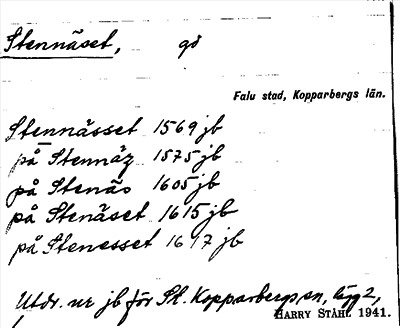 Stennäset, gd
Falu stad, Kopparbergs län.
Stennässet 1569 jb
på Stennäz 1575 jb
på Stenäs 1605 jb
på Stenäset 1615 jb
på Stenesset 1617 jb
Utdr. ur jb för St. Kopparbergs sn, lägg 2,
HARRY STÅHL 1941.